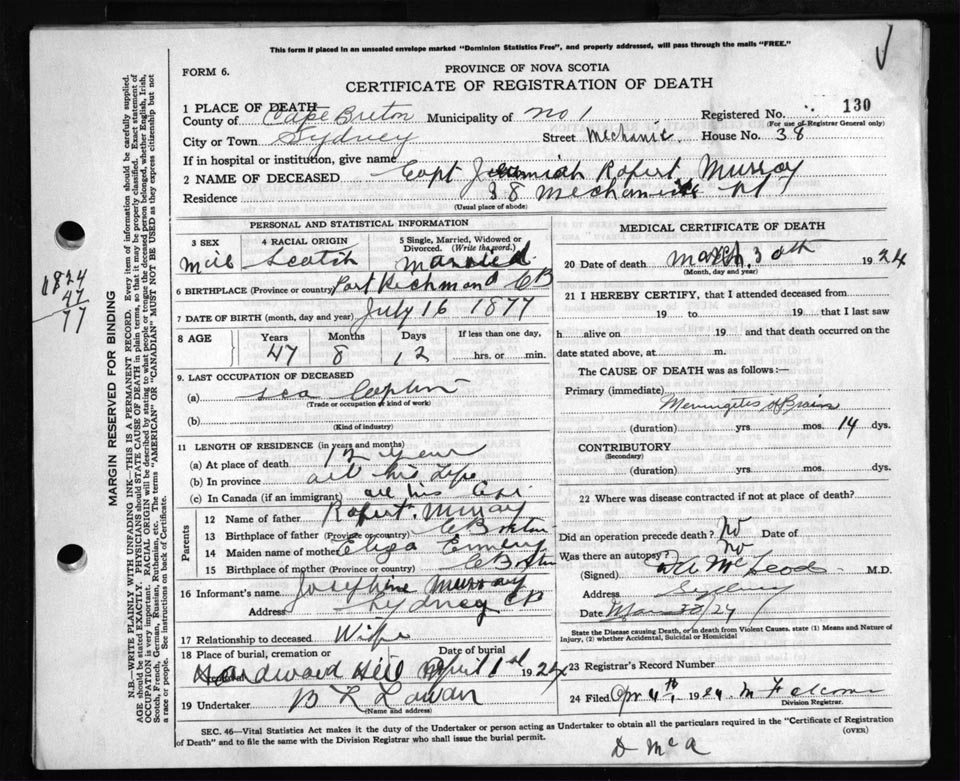 This form if placed in an unsealed envelope marked "Dominion Statistics Free", and properly addressed, will pass through the mails "FREE."
FORM 6.
PROVINCE OF NOVA SCOTIA
CERTIFICATE OF REGISTRATION OF DEATH
1 PLACE OF DEATH
County of Cape Breton Municipality of No 1 Registered No. 130
(For use of Registrar General only)
City or Town Sydney Street Mechanic House No. 38
If in hospital or institution, give name
2 NAME OF DECEASED Capt Jeremiah Robert Murray
Residence 38 Mechanic St
(Usual place of abode)
PERSONAL AND STATISTICAL INFORMATION
3 SEX 4 RACIAL ORIGIN 5 Single, Married, Widowed or Divorced. (Write the word.)
Male Scotch Married
6 BIRTHPLACE (Province or country) Port Richmond CB
7 DATE OF BIRTH (month, day and year) July 16 1877
8 AGE Years Months Days If less than one day,
47 8 12 hrs. or min.
9. LAST OCCUPATION OF DECEASED
(a) Sea Captin
(Trade or occupation or kind of work)
(b)
(Kind of industry)
11 LENGTH OF RESIDENCE (in years and months)
(a) At place of death 12 Year
(b) In province all his Life
(c) In Canada (if an immigrant) all his
Parents
12 Name of father Robert Murray
13 Birthplace of father (Province or country) C Breton
14 Maiden name of mother Eliza Emery
15 Birthplace of mother (Province or country) C Breton
16 Informant's name Josephine Murray
Address Sydney CB
17 Relationship to deceased Wife
18 Place of burial, cremation or Date of burial
Hardwood Hill April 1st 1924
19 Undertaker B L
(Name and address)
MEDICAL CERTIFICATE OF DEATH
20 Date of death March 30th 1924
(Month, day and year)
21 I HEREBY CERTIFY, that I attended deceased from
19 to 19 that I last saw
h alive on 19 and that death occurred on the
date stated above, at m.
The CAUSE OF DEATH was as follows:—
Primary (immediate)
Meningites of Brain
(duration) yrs. mos. 14 dys.
CONTRIBUTORY
(Secondary)
(duration) yrs. mos. dys.
22 Where was disease contracted if not at place of death?
Did an operation precede death? No Date of
Was there an autopsy? No
(Signed) McLeod M.D.
Address Sydney
Date Mar 30/24
State the Disease causing Death, or in death from Violent Causes, state (1) Means and Nature of
Injury, (2) whether Accidental, Suicidal or Homicidal
23 Registrar's Record Number
24 Filed Apr 4th 1924 M Falconer
Division Registrar.
SEC. 46—Vital Statistics Act makes it the duty of the Undertaker or person acting as Undertaker to obtain all the particulars required in the "Certificate of Registration
of Death" and to file the same with the Division Registrar who shall issue the burial permit.
(OVER)
D McA
MARGIN RESERVED FOR BINDING
N.B.—WRITE PLAINLY WITH UNFADING INK—THIS IS A PERMANENT RECORD. Every item of information should be carefully supplied.
AGE should be stated EXACTLY. PHYSICIANS should STATE CAUSE OF DEATH in plain terms, so that it may be properly classified. Exact statement of
OCCUPATION is very important. RACIAL ORIGIN will be described by stating to what people or tongue the deceased person belonged, whether English, Irish,
Scotch, French, German, Russian, Ruthenian, etc. The terms "AMERICAN" OR "CANADIAN" MUST NOT BE USED as they express citizenship but not
a race or people. See instructions on back of Certificate.
1824
47
77